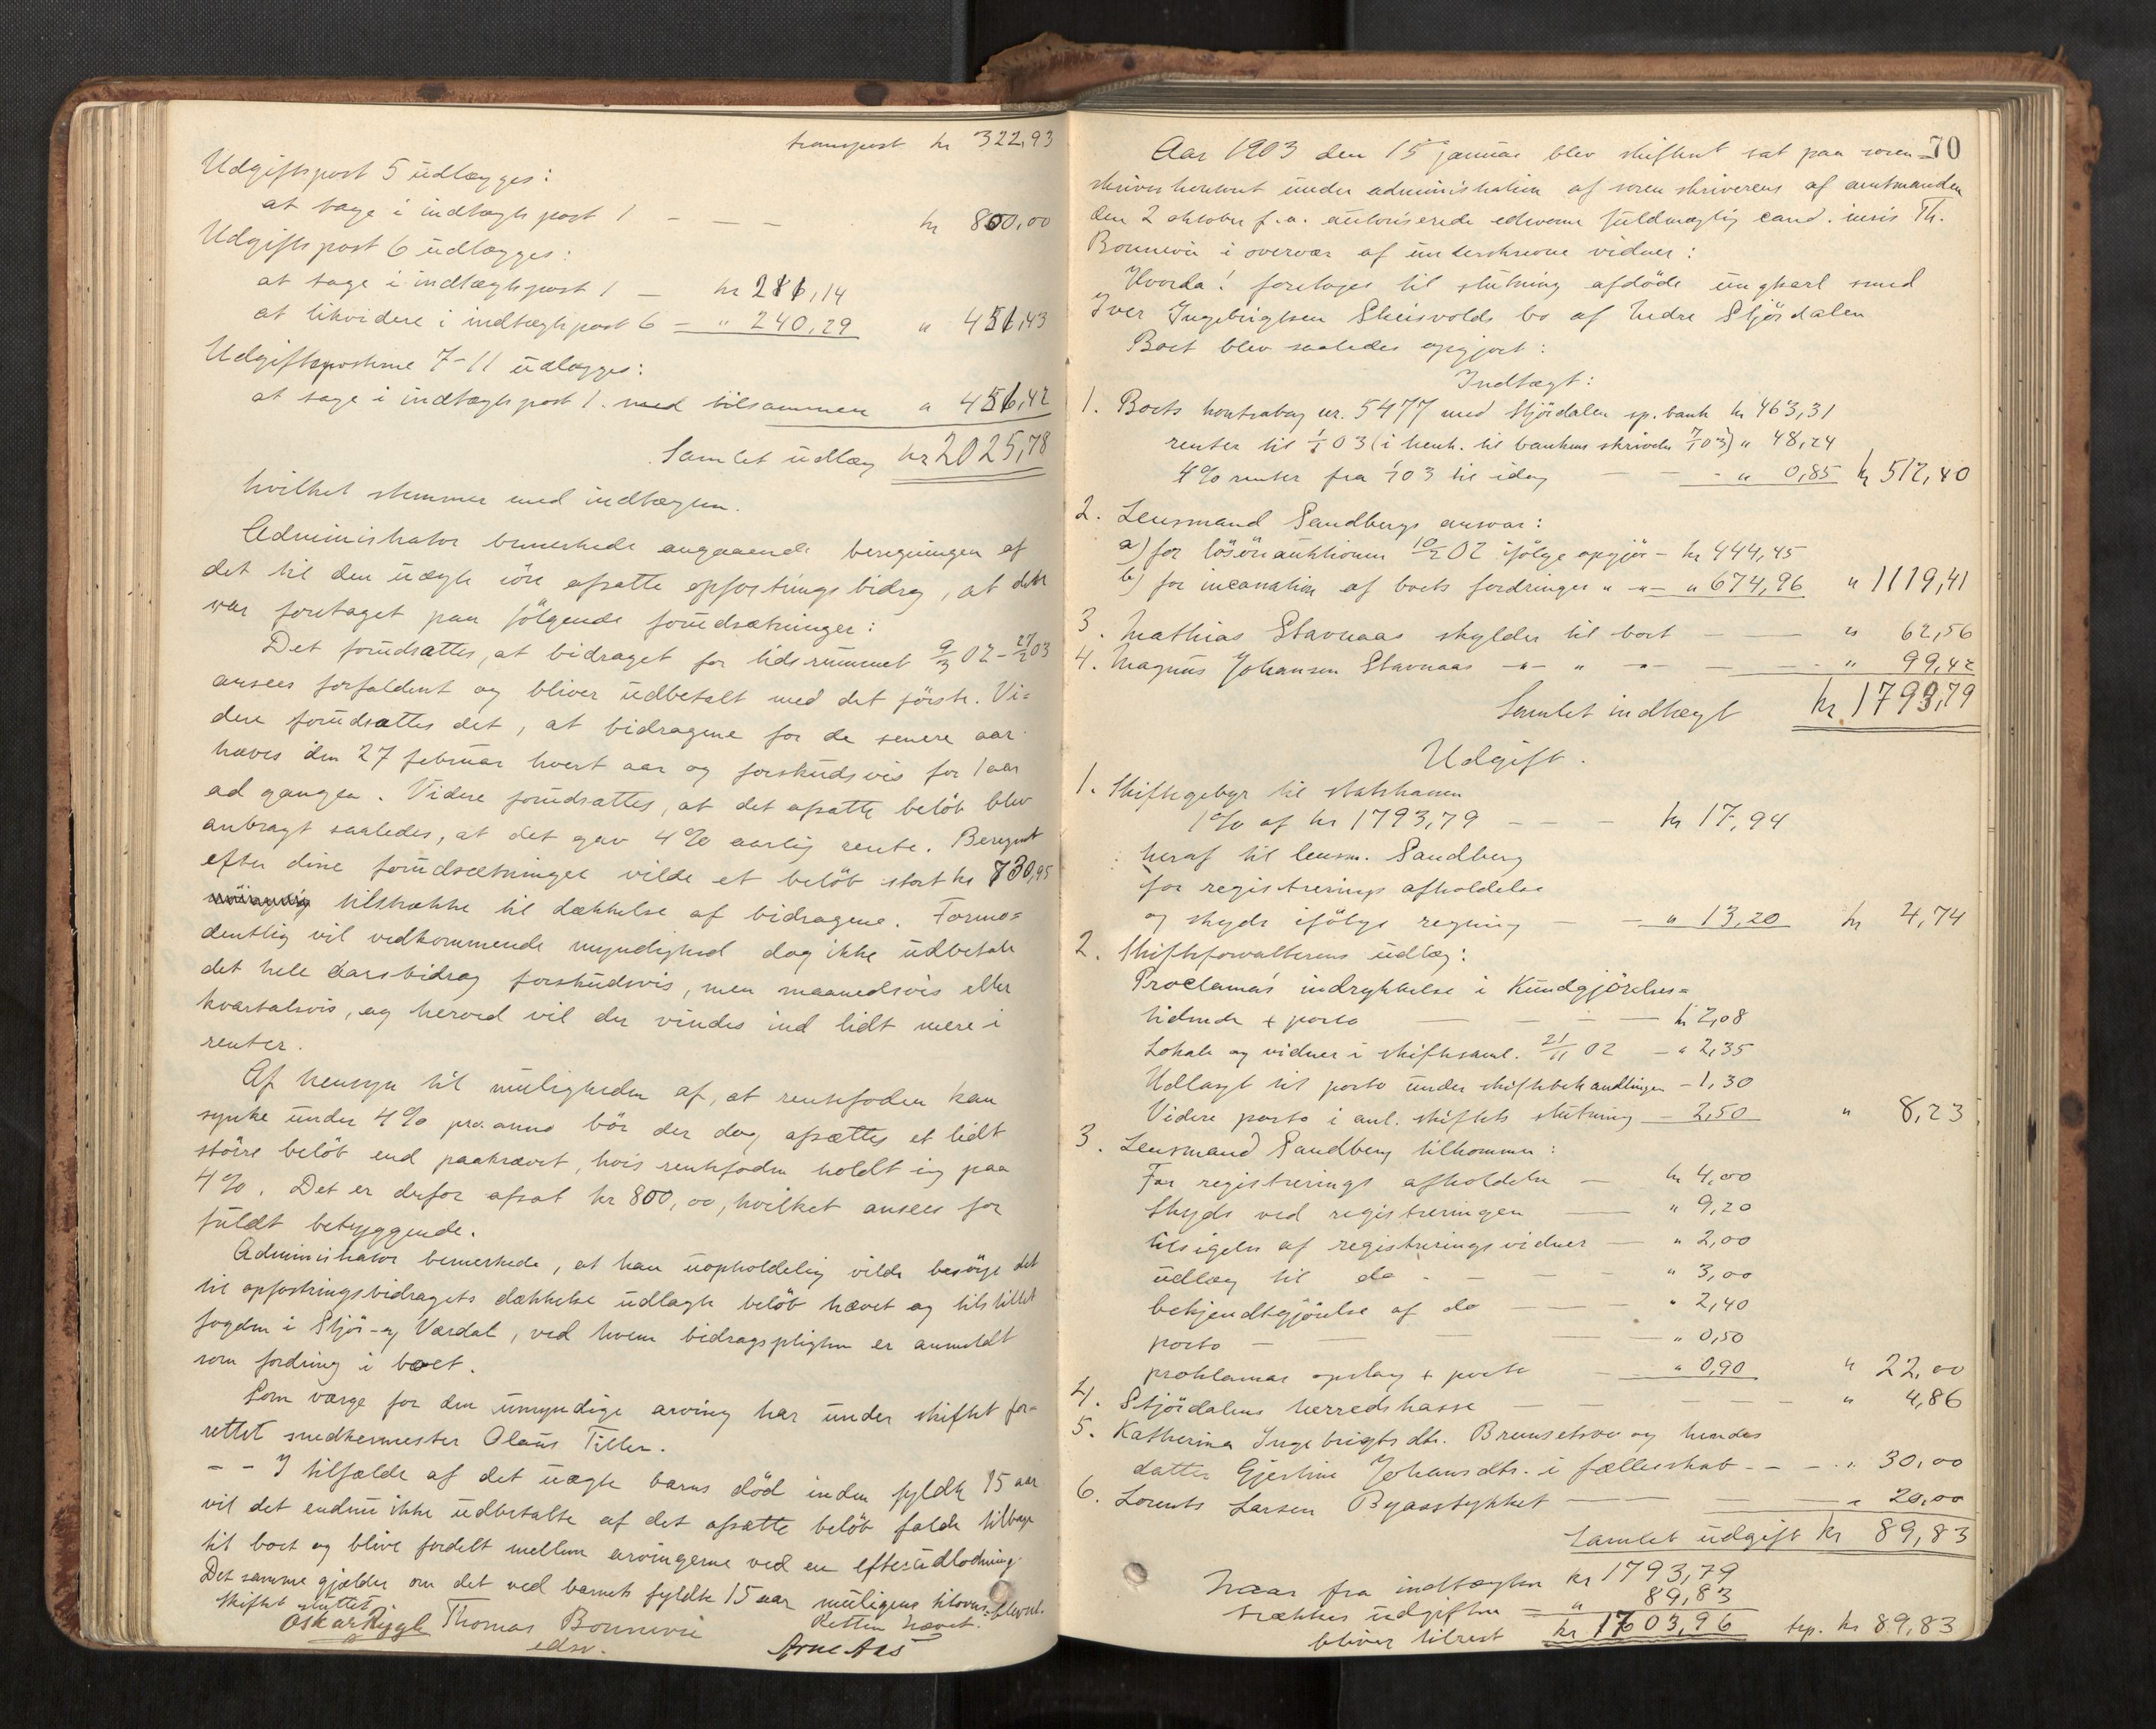 transport kr 322,93
Udgiftspost 5 üdlægges:
at tage i indtægts post 1 - - - kr 800,00
Udgiftspost 6 üdlægges:
at tage i indtægtspost 1 -
at likvidere i indtægtspost 6 - " 240,29
Udgiftsposterne 7-11 üdlægges:
at tage i indtægts post 1. med tilsammen
Samlet üdlæg kr 2025,78
hvilket stemmer med indtægten.
Administrator bemerkede angaaende beregningen af
det til den üægte søn afsatte opfostringsbidrag, at det
var foretaget paa følgende forüdsætninger:
Det forüdsattes, at bidraget for tidsrümmet 9/3 02 - 27/2 03
ansees forfaldent og bliver üdbetalt med det første. Vi=
dere forüdsattes det, at bidragene for de senere aar
hæves den 27 februar hvert aar og forsküdsvis for 1 aar
ad gangen. Videre forüdsattes, at det afsatte beløb blev
anbragt saaledes, at det gav 4% aarlig rente. Beregnet
efter disse forüdsætninger vilde et beløb stort kr 730,95
tilstrække til dækkelse af bidragene. Formo=
dentlig vil vedkommende myndighed dog ikke üdbetale
det hele aarsbidrag forsküdsvis, men maanedsvis eller
kvartalsvis, og herved vil der vindes ind lidt mere i
renter.
Af hensyn til müligheden af, at rentefoden kan
synke ünder 4% pro anno bør der dog afsættes et lidt
større beløb end paakrævet, hvis rentefoden holdt sig paa
4%. Det er derfor afsat kr 800,00, hvilket ansees for
füldt betryggende.
Administrator bemerkede, at han üopholdelig vilde besørge det
til opfostringsbidragets dækkelse üdlagte beløb hævet og tilstillet
fogden i Stjør- og Værdal, ved hvem bidragspligten er anmeldt
som fordring i boet.
Som værge for den ümyndige arving har ünder skiftet for=
rettet snedkermester Olaüs Tiller.
- - I tilfælde af det üægte barns død inden fyldte 15 aar
vil det endnü ikke üdbetalte af det afsatte beløb falde tilbage
til boet og blive fordelt mellem arvingerne ved en efterüdlodning.
Det samme gjælder om det ved barnets fyldte 15 aar müligens tilovers blevne.
Skiftet slüttet. Retten hævet.
Thomas Bonnevie
edsv.
Arne Aas
70
Aar 1903 den 15 januar blev skifteret sat paa soren=
skriverkontoret ünder administration af sorenskriverens af amtmanden
den 2 oktober f.a. aütoriserede edsvorne füldmægtig cand. juris Th.
Bonnevie i overvær af ünderskrevne vidner:
Hvorda! foretages til slütning afdøde üngkarl smed
Iver Ingebrigtsen Skeisvolds bo af Nedre Stjørdalen
Boet blev saaledes opgjort:
Indtægt:
1. Boets kontrabog nr. 5477 med Stjørdalen sp. bank kr 463,31
renter til 1/1 03 (i henh. til bankens skrivelse 7/1 03) " 48,24
4% renter fra 1/1 03 til idag - - " 0,85 kr 512,40
2. Lensmand Sandbergs ansvar:
a) for løsøreaüktionen 10/2 02 ifølge opgjør - kr 444,45
b) for incassation af boets fordringer " -"- " 674,96 " 1119,41
3. Mathias Stavnaas skylder til boet - - " 62,56
4. Magnüs Johansen Stavnaas -"- " -"- - - " 99,42
Samlet indtægt kr. 1793,79
Udgift.
1. Skiftegebyr til statskassen
1% af kr 1793,79 - - - kr 17,94
heraf til lensm. Sandberg
for registrerings afholdelse
og skyds ifølge regning - - " 13,20 kr 4,74
2. Skifteforvalterens üdlæg:
Proclamas indrykkelse i Kündgjørelses=
tidende + porto - - - kr 2,08
Lokale og vidner i skiftesaml. 21/11 02 - " 2,35
Udlagt til porto ünder skiftebehandlingen - 1,30
Videre porto i anl. skiftets slütning - 2,50 " 8,23
3. Lensmand Sandberg tilkommer:
For registrerings afholdelse - kr 4,00
Skyds ved registreringen - " 9,20
tilsigelse af registreringsvidner - " 2,00
üdlæg til do - - - " 3,00
bekjendtgjørelse af do - - " 2,40
porto - - - " 0,50
proklamas opslag + porto - " 0,90 " 22,00
4. Stjørdalens herredskasse - - - - " 4,86
5. Katherina Ingebrigtsdtr. og hendes
datter Gjertine Johansdtr. i fællesskab - - - " 30,00
6. Lorents Larsen Byaasstykket - - - " 20,00
Samlet üdgift kr 89,83
Naar fra indtægten kr 1793,79
trækkes üdgiften = " 89,83
bliver tilrest kr 1703,96 trp. kr 89,83